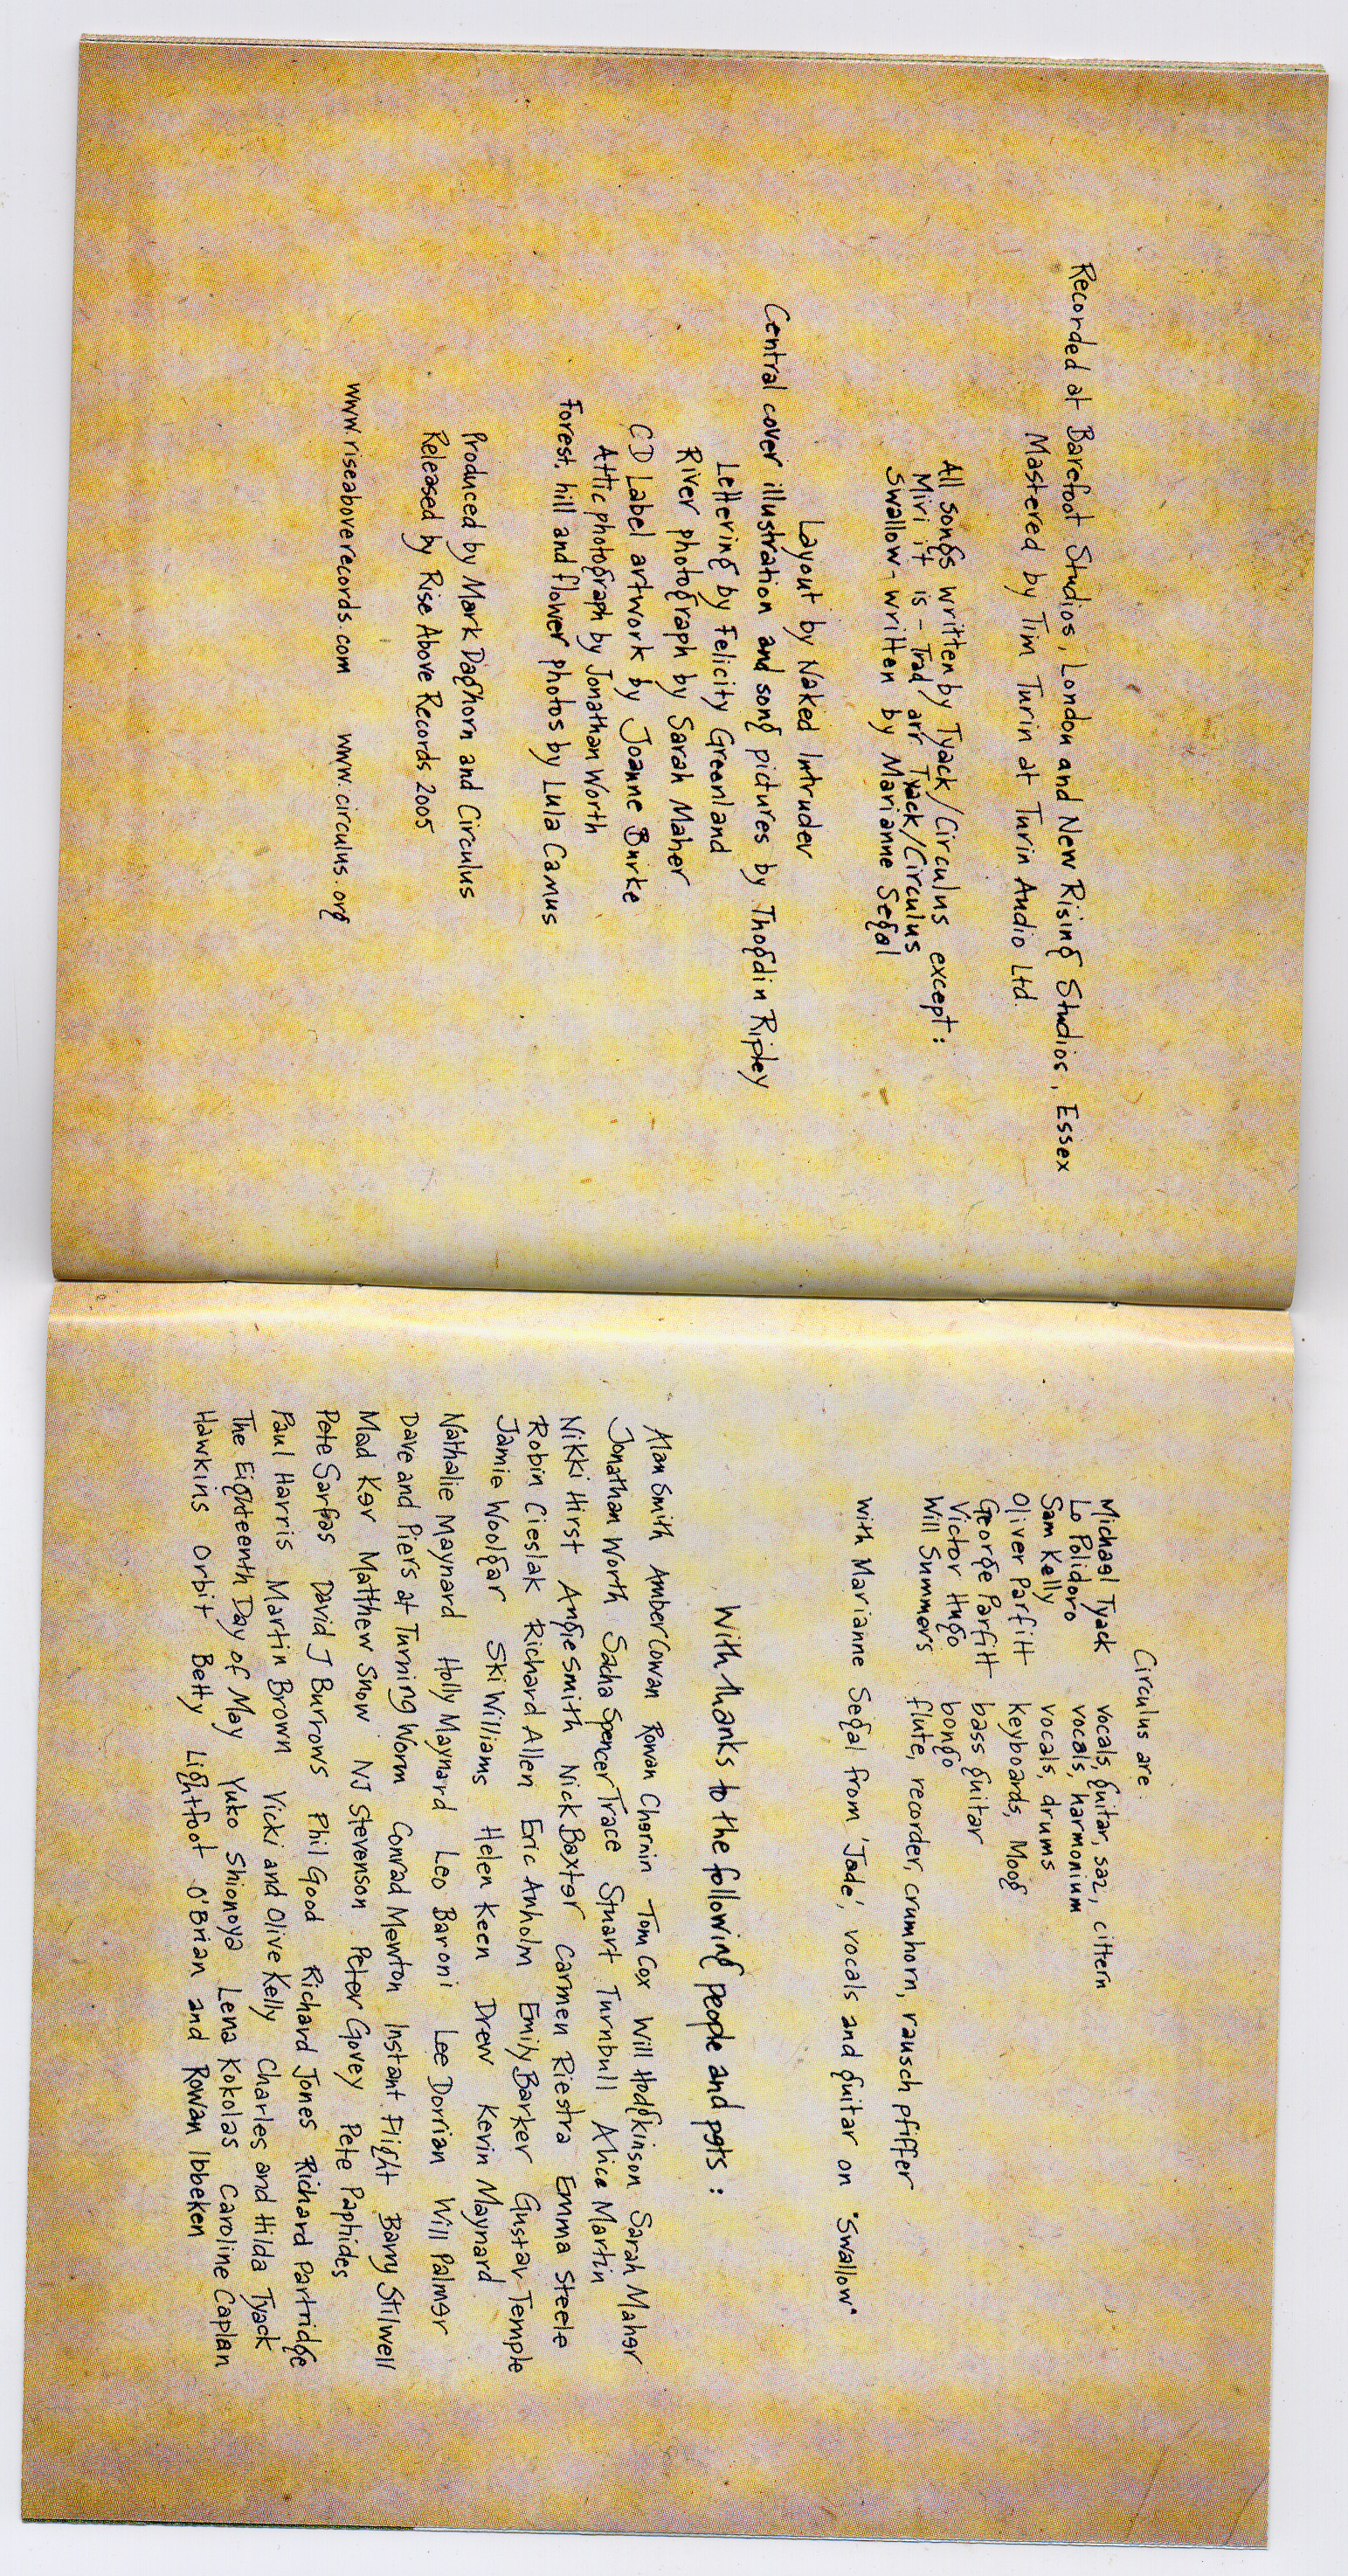 Recorded at Barefoot Studios, London and New Rising Studios, Essex
Mastered by Tim Turin at Turin Audio Ltd.
All songs written by Tyack/Circulus except:
Miri it is - Trad arr Tyack/Circulus
Swallow - written by Marianne Segal
Layout by Naked Intruder
Central cover illustration and song pictures by Thogdin Ripley
Lettering by Felicity Greenland
River photograph by Sarah Maher
CD Label artwork by Joanne Burke
Attic photograph by Jonathan Worth
Forest, hill and flower photos by Lula Camus
Produced by Mark Daghorn and Circulus
Released by Rise Above Records 2005
www.riseaboverecords.com www.circulus.org
Circulus are:
Michael Tyack vocals, guitar, saz, cittern
Lo Polidoro vocals, harmonium
Sam Kelly vocals, drums
Oliver Parfitt keyboards, Moog
George Parfitt bass guitar
Victor Hugo bongo
Will Summers flute, recorder, crumhorn, rausch pfiffer
with Marianne Segal from 'Jade', vocals and guitar on "Swallow"
With thanks to the following people and pets:
Alan Smith Amber Cowan Rowan Chernin Tom Cox Will Hodgkinson Sarah Maher
Jonathan Worth Sacha Spencer Trace Stuart Turnbull Alice Martin
Nikki Hirst Angie Smith Nick Baxter Carmen Riestra Emma Steele
Robin Cieslak Richard Allen Eric Anholm Emily Barker Gustav Temple
Jamie Woolgar Ski Williams Helen Keen Drew Kevin Maynard
Nathalie Maynard Holly Maynard Leo Baroni Lee Dorrian Will Palmer
Dave and Piers at Turning Worm Conrad Mewton Instant Flight Barry Stilwell
Mad Ker Matthew Snow NJ Stevenson Peter Govey Pete Paphides
Pete Sarfas David J Burrows Phil Good Richard Jones Richard Partridge
Paul Harris Martin Brown Vicki and Olive Kelly Charles and Hilda Tyack
The Eighteenth Day of May Yuko Shionoya Lena Kokolas Caroline Caplan
Hawkins Orbit Betty Lightfoot O'Brian and Rowan Ibbeken